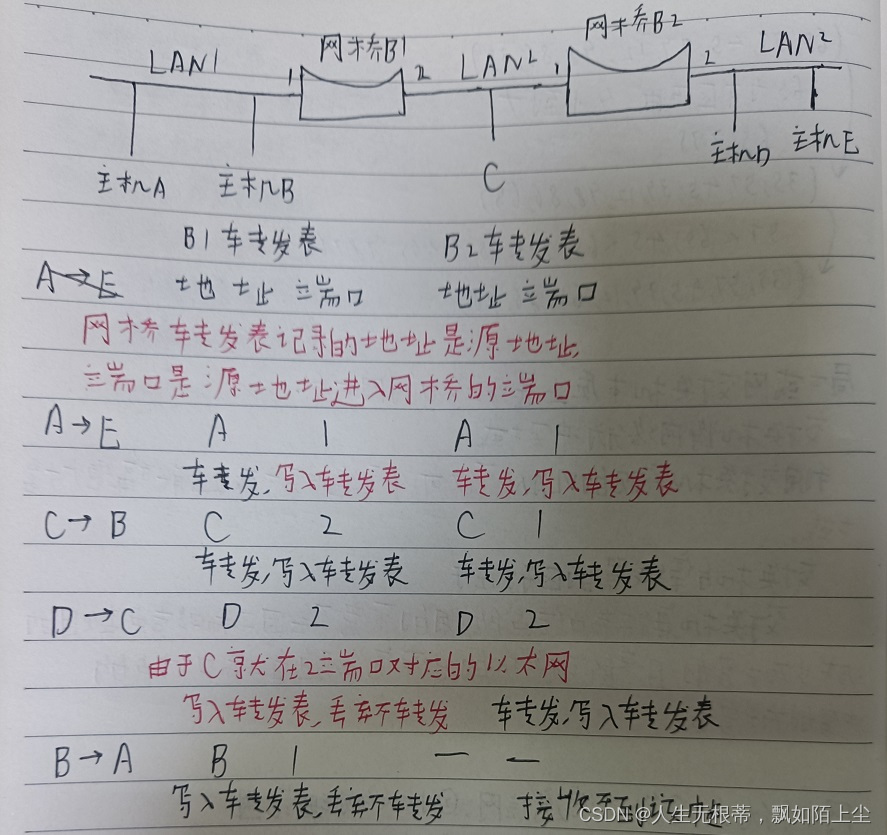 网桥B2
LAN1 网桥B1 LAN2 LAN2
1 2 1 2
主机A 主机B C 主机D 主机E
B1转发表 B2转发表
A→E 地址 端口 地址 端口
网桥转发表记录的地址是源地址,
端口是源地址进入网桥的端口
A→E A 1 A 1
转发,写入转发表 转发,写入转发表
C→B C 2 C 1
转发,写入转发表 转发,写入转发表
D→C D 2 D 2
由于C就在2端口对应的以太网
写入转发表,丢弃不转发 转发,写入转发表
B→A B 1 — —
写入转发表,丢弃不转发 接收不到这
CSDN @人生无根蒂，飘如陌上尘